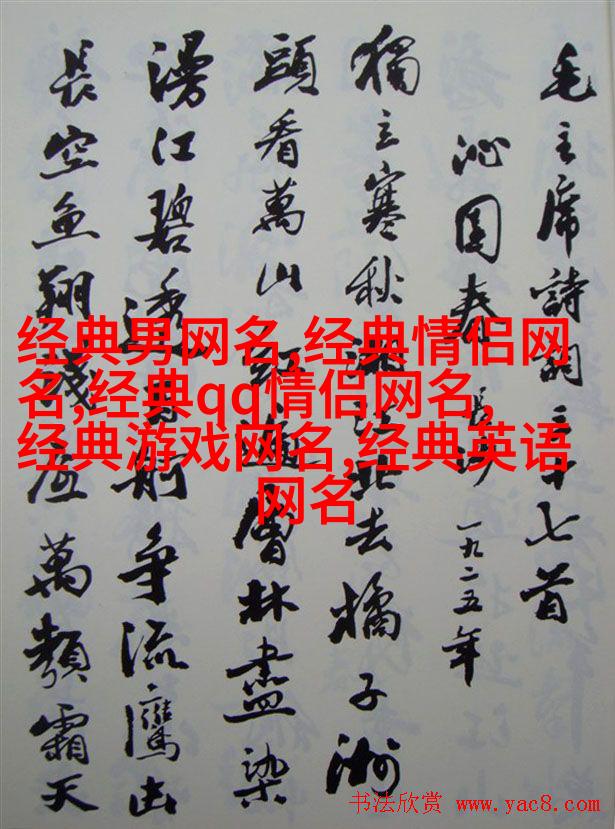 毛主席詩詞三十七首
沁園春 長沙 一九二五年
獨立寒秋湘江北去橘子洲
頭看萬山紅遍層林盡染
漫江碧透百舸爭流鷹击
長空魚翔淺底萬類霜天
经典男网名,经典情侣网
名,经典qq情侣网名,
经典游戏网名,经典英语
网名
书法欣赏 www.yac8.com